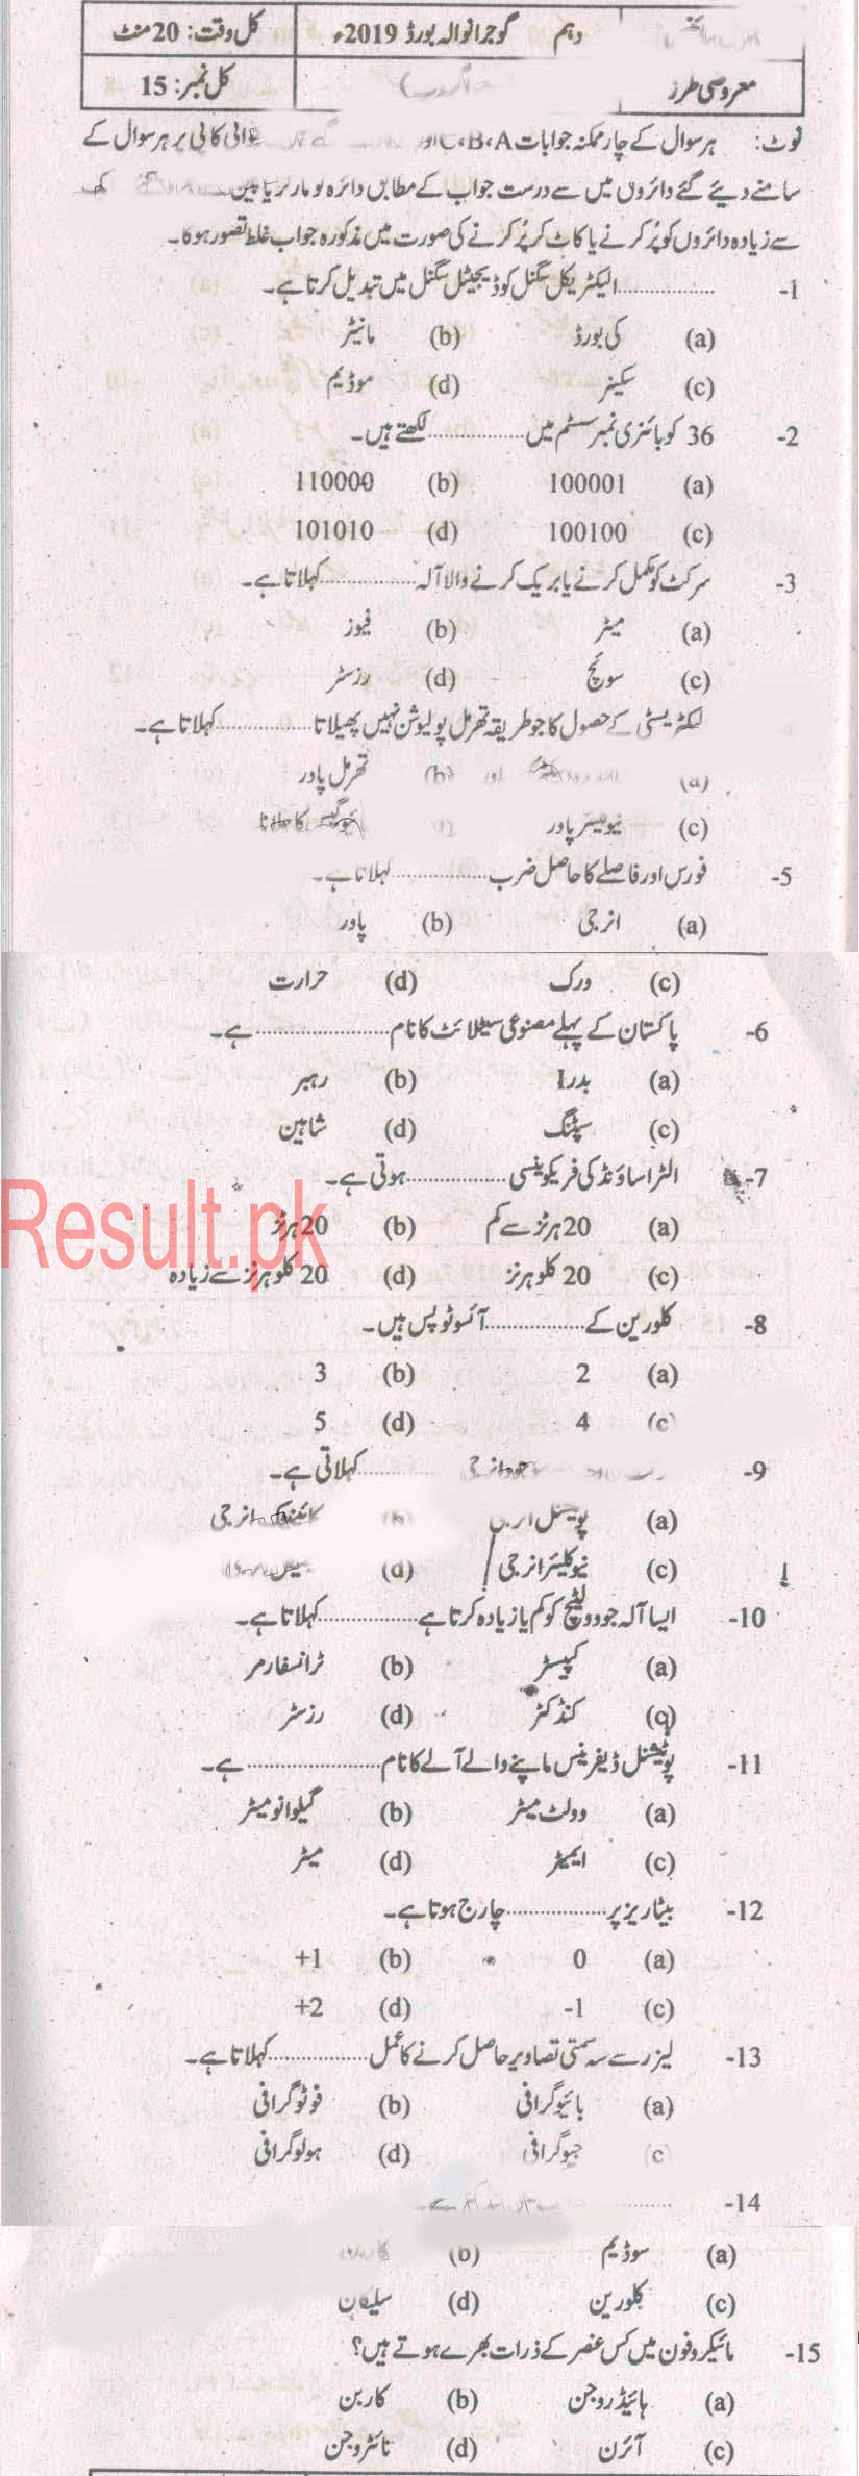 دہم گوجرانوالہ بورڈ 2019ء کل وقت: 20 منٹ
معروضی طرز کل نمبر: 15
نوٹ: ہر سوال کے چار ممکنہ جوابات C،B،A اور کاپی پر ہر سوال کے
سامنے دیئے گئے دائروں میں سے درست جواب کے مطابق دائرہ کو مارکر یا پین
سے زیادہ دائروں کو پُر کرنے یا کاٹ کر پُر کرنے کی صورت میں مذکورہ جواب غلط تصور ہوگا۔
1- ................الیکٹریکل سگنل کو ڈیجیٹل سگنل میں تبدیل کرتا ہے۔
(a) کی بورڈ (b) مانیٹر
(c) سکینر (d) موڈیم
2- 36 کو بائنری نمبر سسٹم میں................لکھتے ہیں۔
(a) 100001 (b) 110000
(c) 100100 (d) 101010
3- سرکٹ کو مکمل کرنے یا بریک کرنے والا آلہ................کہلاتا ہے۔
(a) میٹر (b) فیوز
(c) سوئچ (d) رزسٹر
لکٹریسٹی کے حصول کا جو طریقہ تھرمل پولیوشن نہیں پھیلاتا................کہلاتا ہے۔
(a) اور (b) تھرمل پاور
(c) نیوکلیئر پاور کا جلانا
5- فورس اور فاصلے کا حاصل ضرب................کہلاتا ہے۔
(a) انرجی (b) پاور
(c) ورک (d) حرارت
6- پاکستان کے پہلے مصنوعی سیٹلائٹ کا نام......................ہے۔
(a) بدر1 (b) رہبر
(c) سپٹنگ (d) شاہین
7- الٹراساؤنڈ کی فریکوئنسی................ہوتی ہے۔
(a) 20 ہرٹز سے کم (b) 20 ہرٹز
Result.pk
(c) 20 کلو ہرٹز (d) 20 کلو ہرٹز سے زیادہ
8- کلورین کے................آئسوٹوپس ہیں۔
(a) 2 (b) 3
(c) 4 (d) 5
9- انرجی ............کہلاتی ہے۔
(a) پوٹینشل انرجی (b) کائنیٹک انرجی
(c) نیوکلیئر انرجی (d)
10- ایسا آلہ جو وولٹیج کو کم یا زیادہ کرتا ہے................کہلاتا ہے۔
(a) کپیسٹر (b) ٹرانسفارمر
(c) کنڈکٹر (d) رزسٹر
11- پوٹینشل ڈیفرینس ماپنے والے آلے کا نام......................ہے۔
(a) وولٹ میٹر (b) گیلوانومیٹر
(c) ایمیٹر (d) میٹر
12- بیٹا ریز پر................چارج ہوتا ہے۔
(a) 0 (b) +1
(c) -1 (d) +2
13- لیزر سے سہ سمتی تصاویر حاصل کرنے کا عمل................کہلاتا ہے۔
(a) بائیوگرافی (b) فوٹوگرافی
(c) جیوگرافی (d) ہولوگرافی
14- ........
(a) سوڈیم (b)
(c) کلورین (d) سیلیکان
15- مائیکروفون میں کس عنصر کے ذرات بھرے ہوتے ہیں؟
(a) ہائیڈروجن (b) کاربن
(c) آئرن (d) نائٹروجن